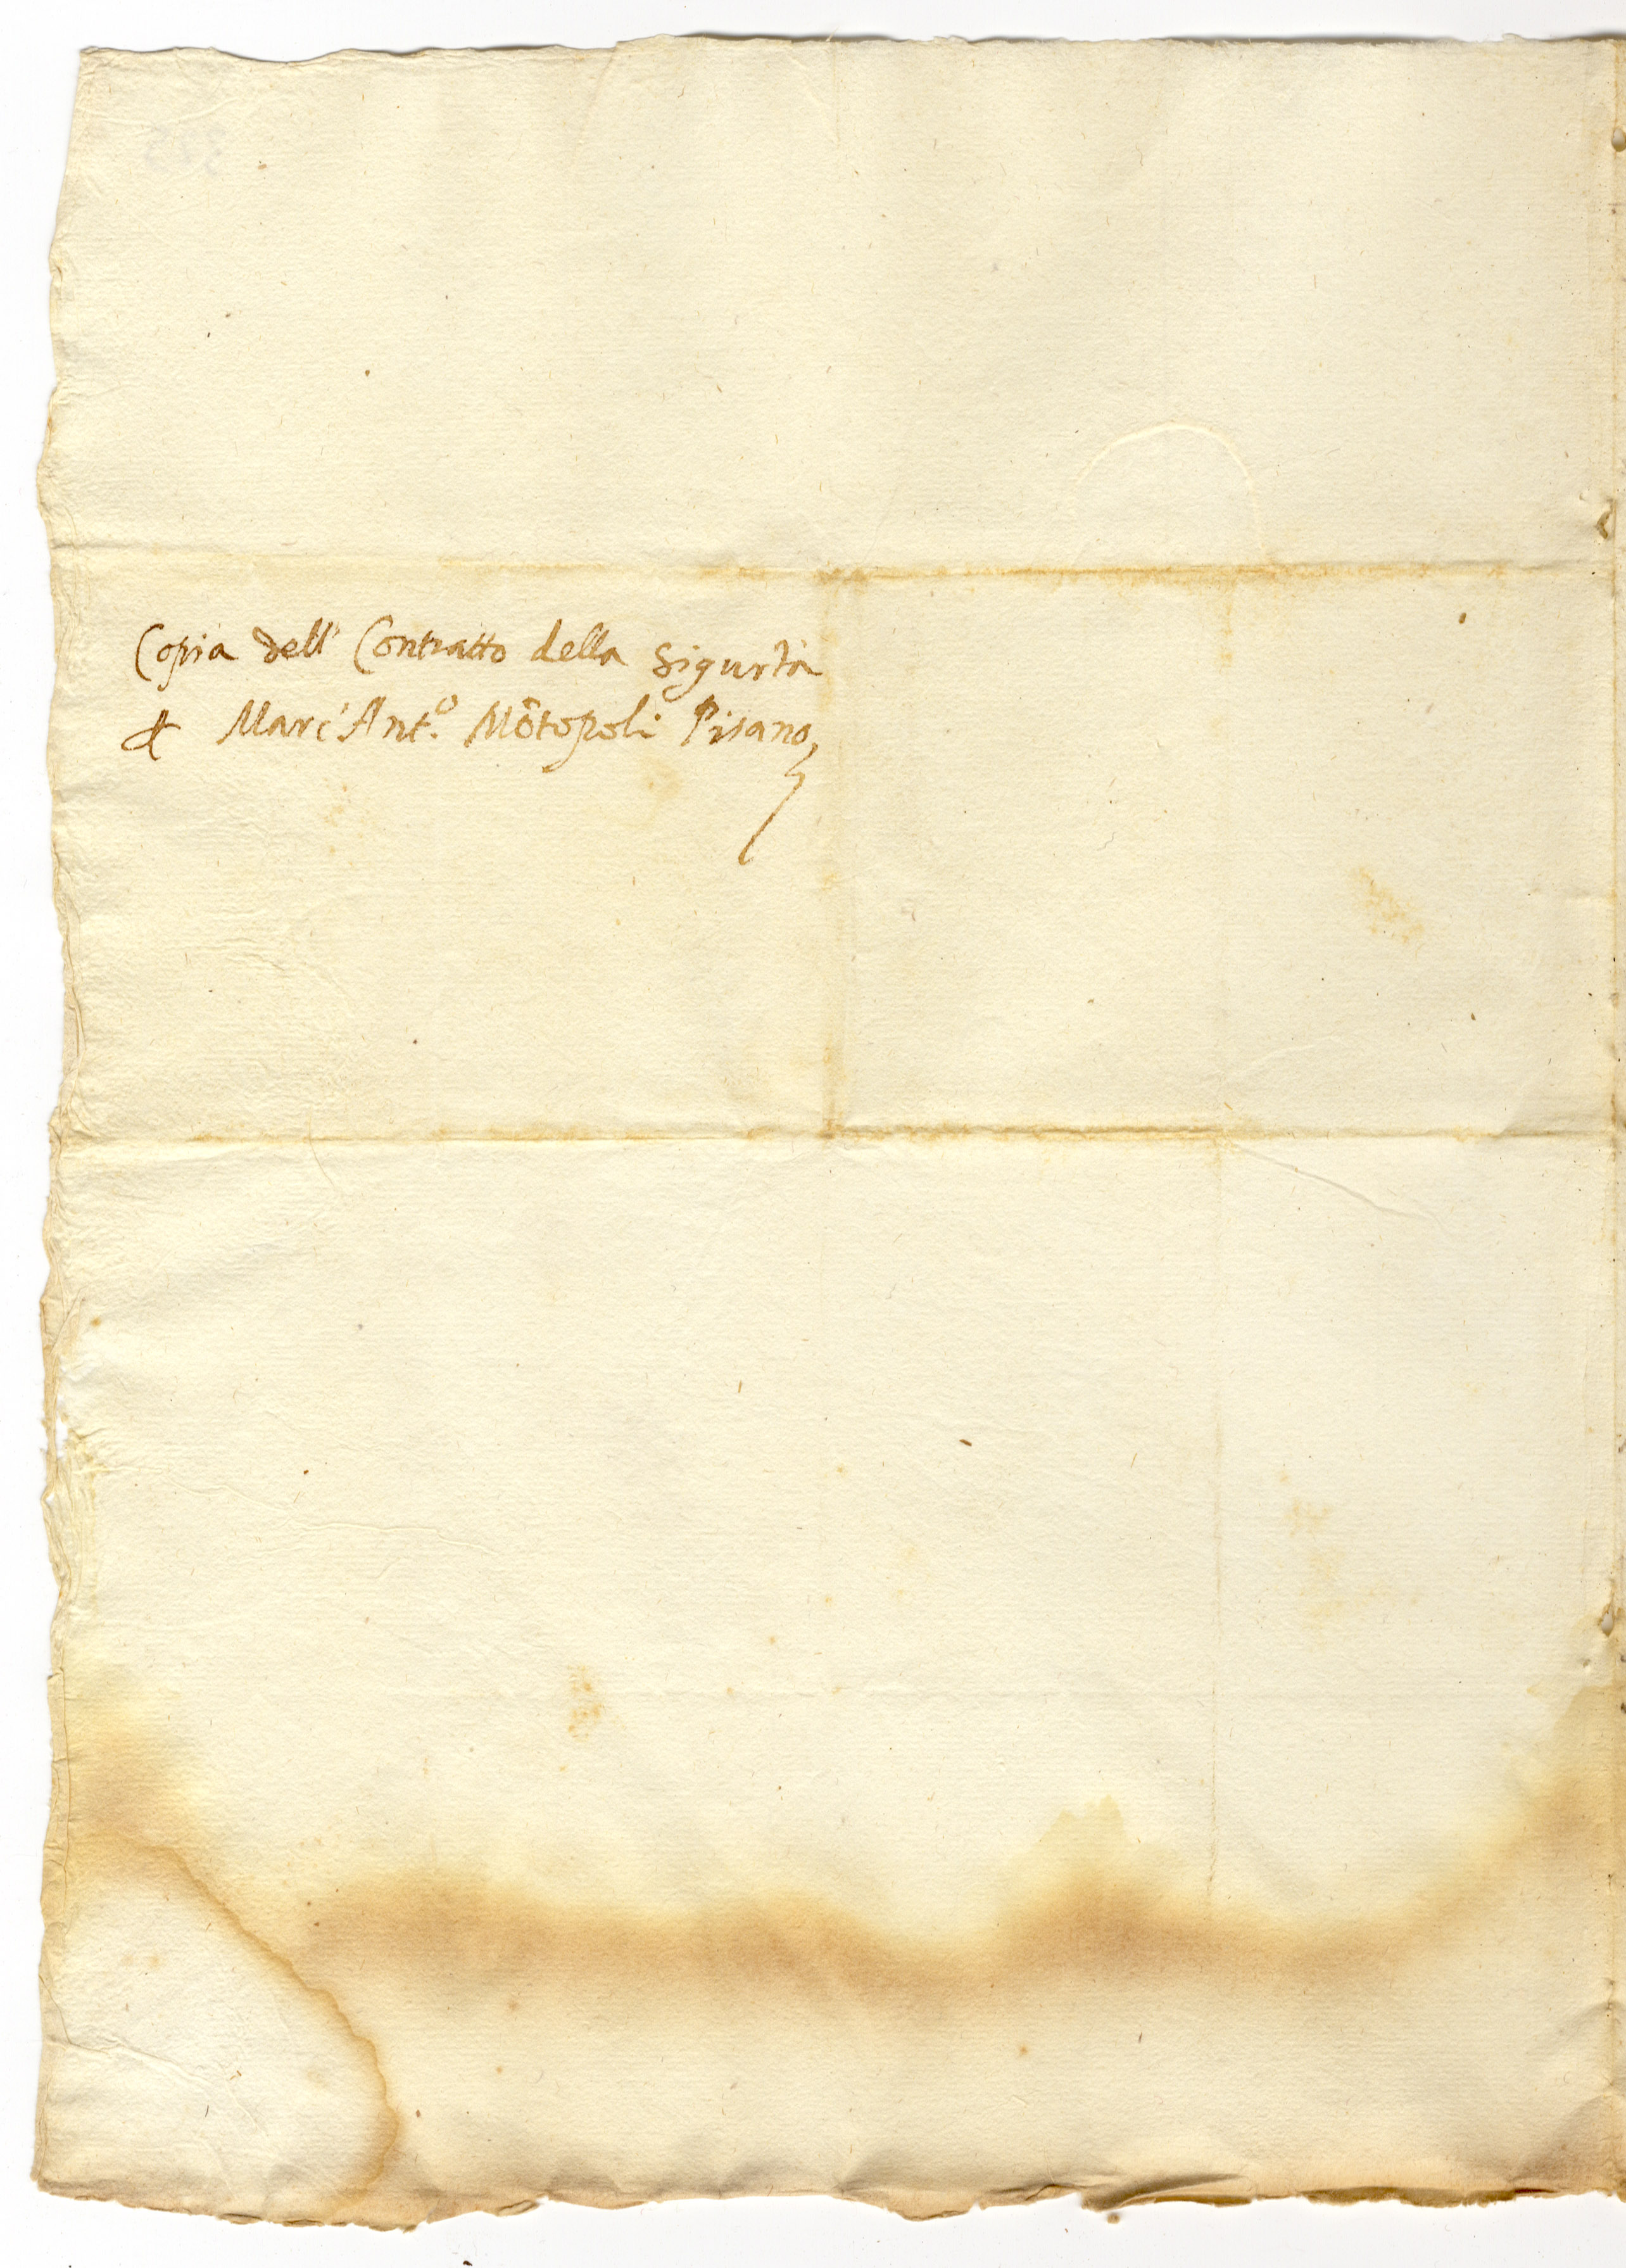 Copia dell' Contratto della Sigurtà
Marc' Ant.º Mõtopoli Pisano,